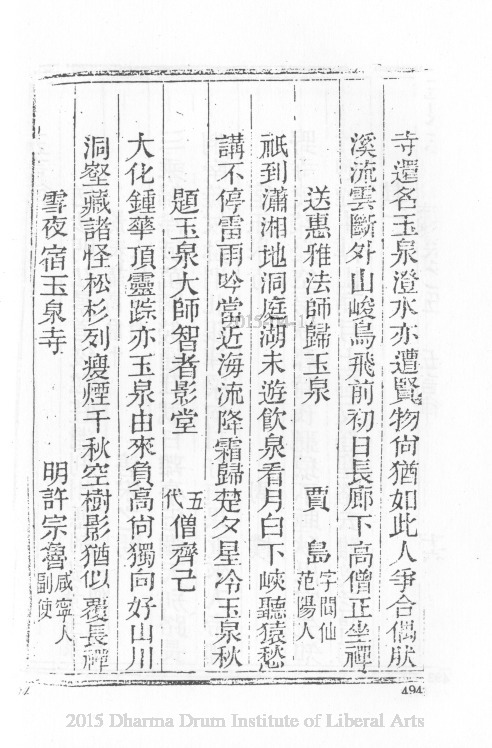 寺還名玉泉澄水亦遭賢物尙猶如此人爭合偶肰
溪流雲斷外山峻鳥飛前初日長廊下高僧正坐禪
送惠雅法師歸玉泉　賈島 字閬仙 范陽人
祇到瀟湘地洞庭湖未遊飮泉看月白下峽聽猿愁
講不停雷雨吟當近海流降霜歸楚夕星冷玉泉秋
題玉泉大師智者影堂　五代 僧齊己
大化鍾華頂靈踪亦玉泉由來負高尙獨向好山川
洞壑藏諸怪松杉列瘦煙千秋空樹影猶似覆長禪
雪夜宿玉泉寺　明許宗魯 咸寧人 副使
494
2015 Dharma Drum Institute of Liberal Arts